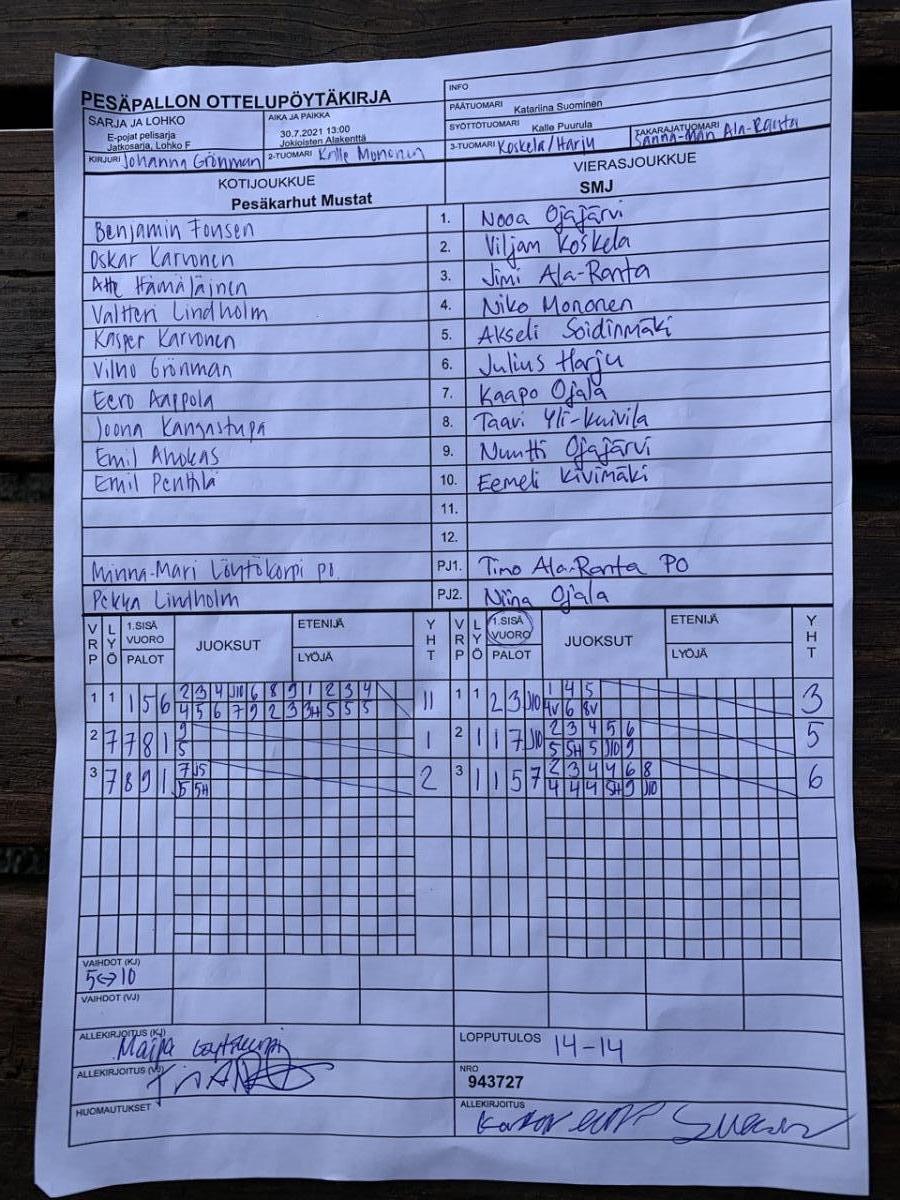 PESÄPALLON OTTELUPÖYTÄKIRJA
INFO
SARJA JA LOHKO
E-pojat pelisarja
Jatkosarja, Lohko F
AIKA JA PAIKKA
30.7.2021 13:00
Jokioisten Alakenttä
PÄÄTUOMARI Katariina Suominen
SYÖTTÖTUOMARI Kalle Puurula
TAKARAJATUOMARI Sanna-Mari Ala-Ranta
KIRJURI Johanna Grönman
2-TUOMARI Kalle Mononen
3-TUOMARI Koskela/Harju
KOTIJOUKKUE
Pesäkarhut Mustat
VIERASJOUKKUE
SMJ
Benjamin Fonsen 1. Nooa Ojajärvi
Oskar Karvonen 2. Viljam Koskela
Atte Hämäläinen 3. Jimi Ala-Ranta
Valtteri Lindholm 4. Niko Mononen
Kasper Karvonen 5. Akseli Soidinmäki
Vilho Grönman 6. Julius Harju
Eero Aappola 7. Kaapo Ojala
Joona Kangastupa 8. Taavi Yli-Kuivila
Emil Ahokas 9. Nuutti Ojajärvi
Emil Penttilä 10. Eemeli Kivimäki
11.
12.
Minna-Mari Löytökorpi PO. PJ1. Timo Ala-Ranta PO
Pekka Lindholm PJ2. Niina Ojala
VRP LYÖ 1.SISÄ VUORO PALOT JUOKSUT ETENIJÄ LYÖJÄ YHT VRP LYÖ 1.SISÄ VUORO PALOT JUOKSUT ETENIJÄ LYÖJÄ YHT
1 1 1 5 6 2 3 4 J10 6 8 9 1 2 3 4 11 1 1 2 3 J10 1 4 5 3
4 5 6 7 9 2 3 3H 5 5 5 4V 6 8V
2 7 7 8 1 9 1 2 1 1 7 J10 2 3 4 5 6 5
5 5 5H 5 J10 9
3 7 8 9 1 7 J5 2 3 1 1 5 7 2 3 4 4 6 8 6
J5 5H 4 4 4 5H 9 J10
VAIHDOT (KJ)
5↔10
VAIHDOT (VJ)
ALLEKIRJOITUS (KJ) Maija
LOPPUTULOS 14-14
ALLEKIRJOITUS (VJ)
NRO
943727
HUOMAUTUKSET
ALLEKIRJOITUS